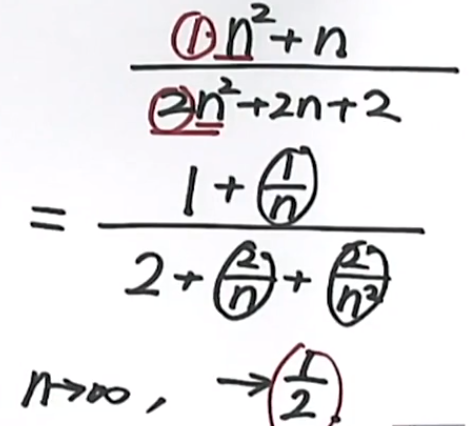 1·n²+n
2n²+2n+2
= 1+1/n
2+2/n+2/n²
n→∞, →1/2